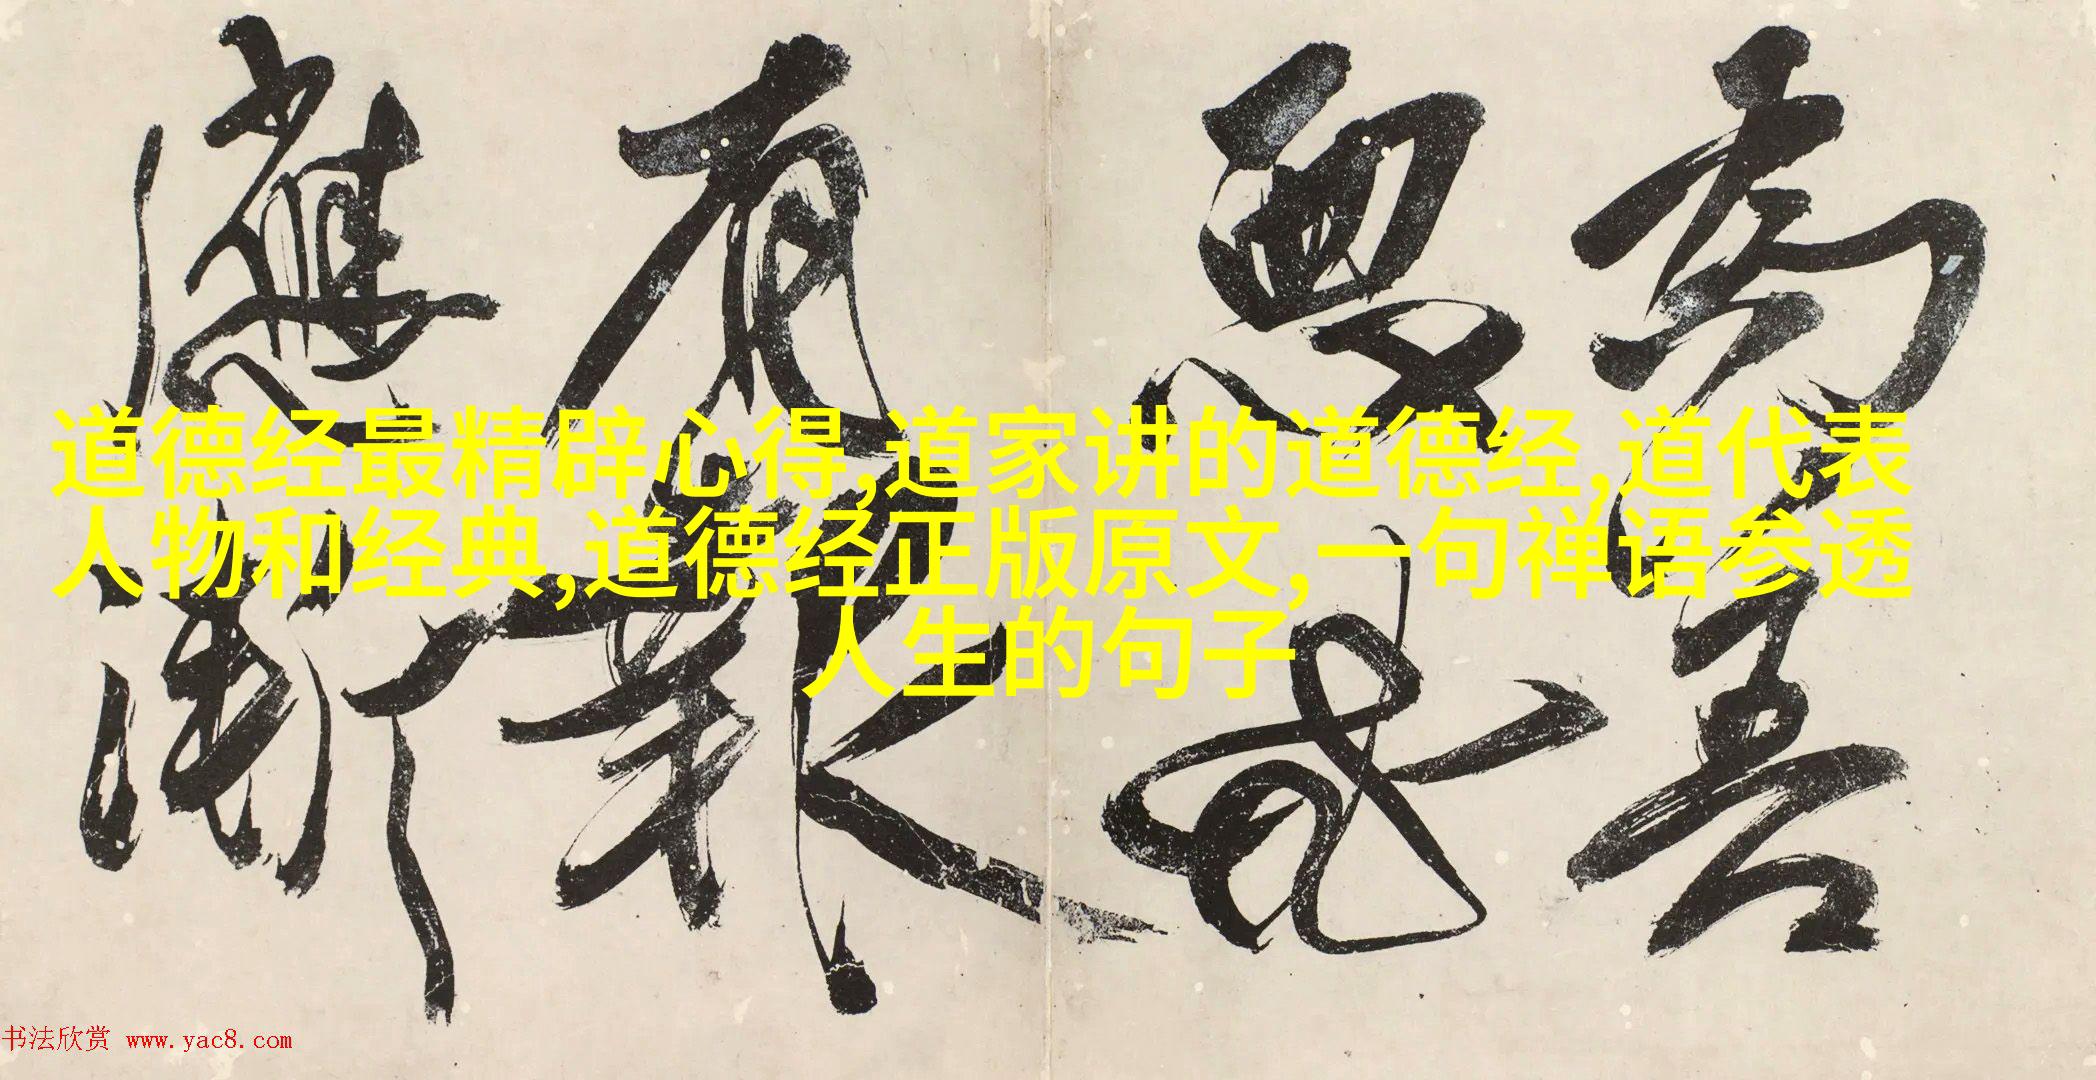 為善
惡或
有報
應漸
道德经最精辟心得,道家讲的道德经,道代表
人物和经典,道德经正版原文,一句禅语参透
人生的句子
书法欣赏 www.yac8.com